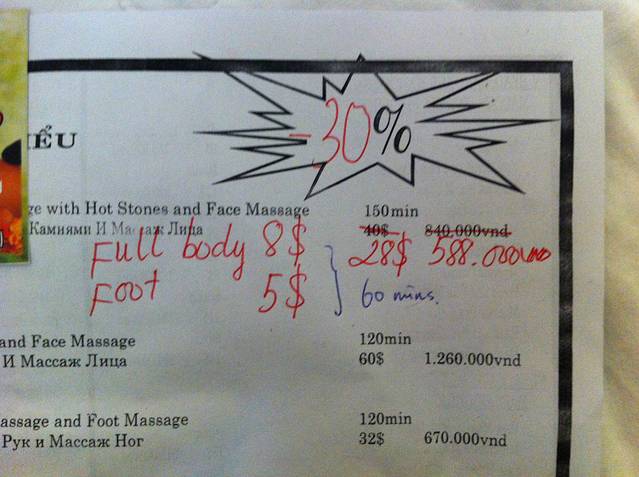 -30%
ỂU
ge with Hot Stones and Face Massage 150min
Камнями И Массаж Лица 40$ 840.000vnd
Full body 8$ 28$ 588.000vnd
Foot 5$ 60 mins.
and Face Massage 120min
И Массаж Лица 60$ 1.260.000vnd
assage and Foot Massage 120min
Рук и Массаж Ног 32$ 670.000vnd